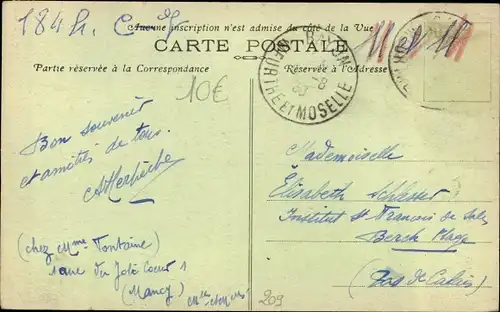 184 h.
Aucune inscription n'est admise du côté de la Vue
CARTE POSTALE
Partie réservée à la Correspondance
Réservée à l'Adresse
BAYON
MEURTHE ET MOSELLE
10€
Bon souvenir
et amitiés de tous.
Mademoiselle
Elisabeth Schlesser
Institut St Francois de Sales
Berck Plage
(Pas de Calais)
(chez Mme Fontaine)
1 rue du Joli Coeur 1
(Nancy)
209